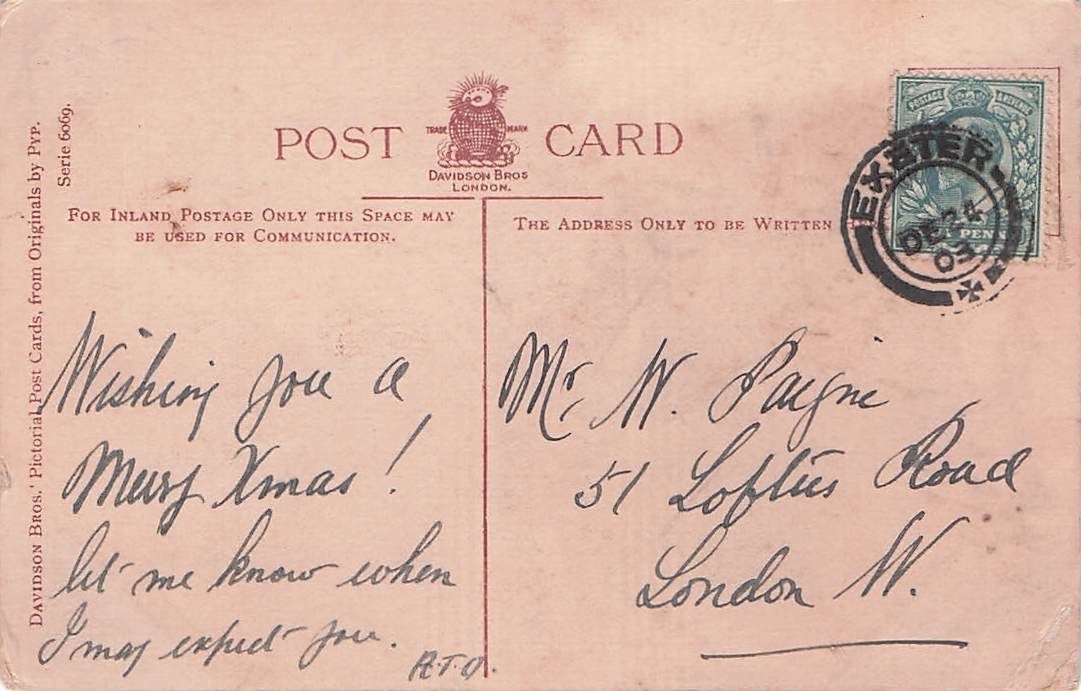 POST CARD
TRADE MARK
DAVIDSON BROS
LONDON.
FOR INLAND POSTAGE ONLY THIS SPACE MAY
BE USED FOR COMMUNICATION.
THE ADDRESS ONLY TO BE WRITTEN
POSTAGE
EXETER
DE 24
03
DAVIDSON BROS.' Pictorial Post Cards, from Originals by PYP.
Serie 6069.
Wishing you a
Merry Xmas!
let me know when
I may expect you.
Mr. W. Payne
51 Loftus Road
London W.